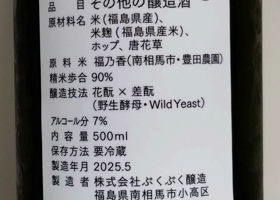 品目 その他の醸造酒
原材料名 米（福島県産）、
米麹（福島県産米）、
ホップ、唐花草
原料米 福乃香（南相馬市・豊田農園）
精米歩合 90%
醸造技法 花酛×差酛
（野生酵母・Wild Yeast）
アルコール分 7%
内容量 500ml
保存方法 要冷蔵
製造年月 2025.5
製造者 株式会社ぷくぷく醸造
福島県南相馬市小高区